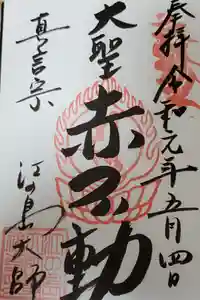 奉拝 令和元年五月四日
大聖
赤不動
真言宗
江の島大師